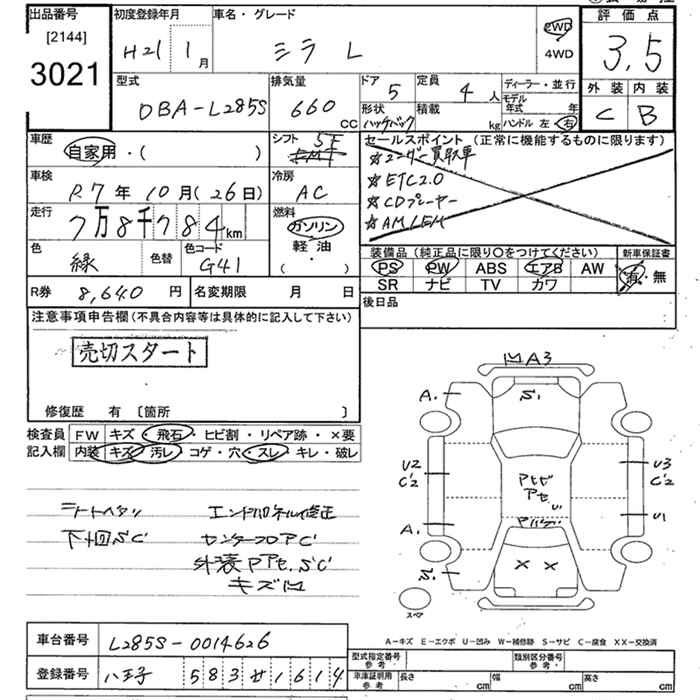 出品番号 初度登録年月 車名・グレード 評価点
[2144]
3021
H21 1月 ミラ L 2WD 4WD 3,5
型式 排気量 ドア 定員 ディーラー・並行 外装 内装
DBA-L285S 660 CC 5 4人 モデル年式 年 C B
形状 積載 ハンドル 左 右
ハッチバック kg
車歴 シフト 5F セールスポイント (正常に機能するものに限ります)
自家用・( )
☆ユーザー買取車
車検 冷房 ☆ETC2.0
R7年10月(26日) AC ☆CDプレーヤー
走行 燃料 ☆AM/FM
7万8千784km ガソリン
軽油
( )
色 色替 色コード 装備品 (純正品に限り〇をつけてください) 新車保証書
緑 G41 PS PW ABS エアB AW 有・無
SR ナビ TV カワ
R券 8,640円 名変期限 月 日 後日品
注意事項申告欄(不具合内容等は具体的に記入して下さい)
売切スタート
修復歴 有 [箇所 ]
検査員 FW キズ・飛石・ヒビ割・リペア跡・×要
記入欄 内装 キズ・汚レ・コゲ・穴・スレ・キレ・破レ
シートヘタリ エンドパネル修正
下回S,C センターフロアC
外装PアセS,C
キズ凹
A3
A. S.
U2 C2 U3 C2
アヒビ アセ
A. U1
S. × ×
スペア
A-キズ E-エクボ U-凹み W-補修跡 S-サビ C-腐食 XX-交換済
車台番号 L285S-0014626 型式指定番号 参考 類別区分番号 参考
登録番号 八王子 583せ1614 車庫証明用 参考 長さ cm 幅 cm 高さ cm